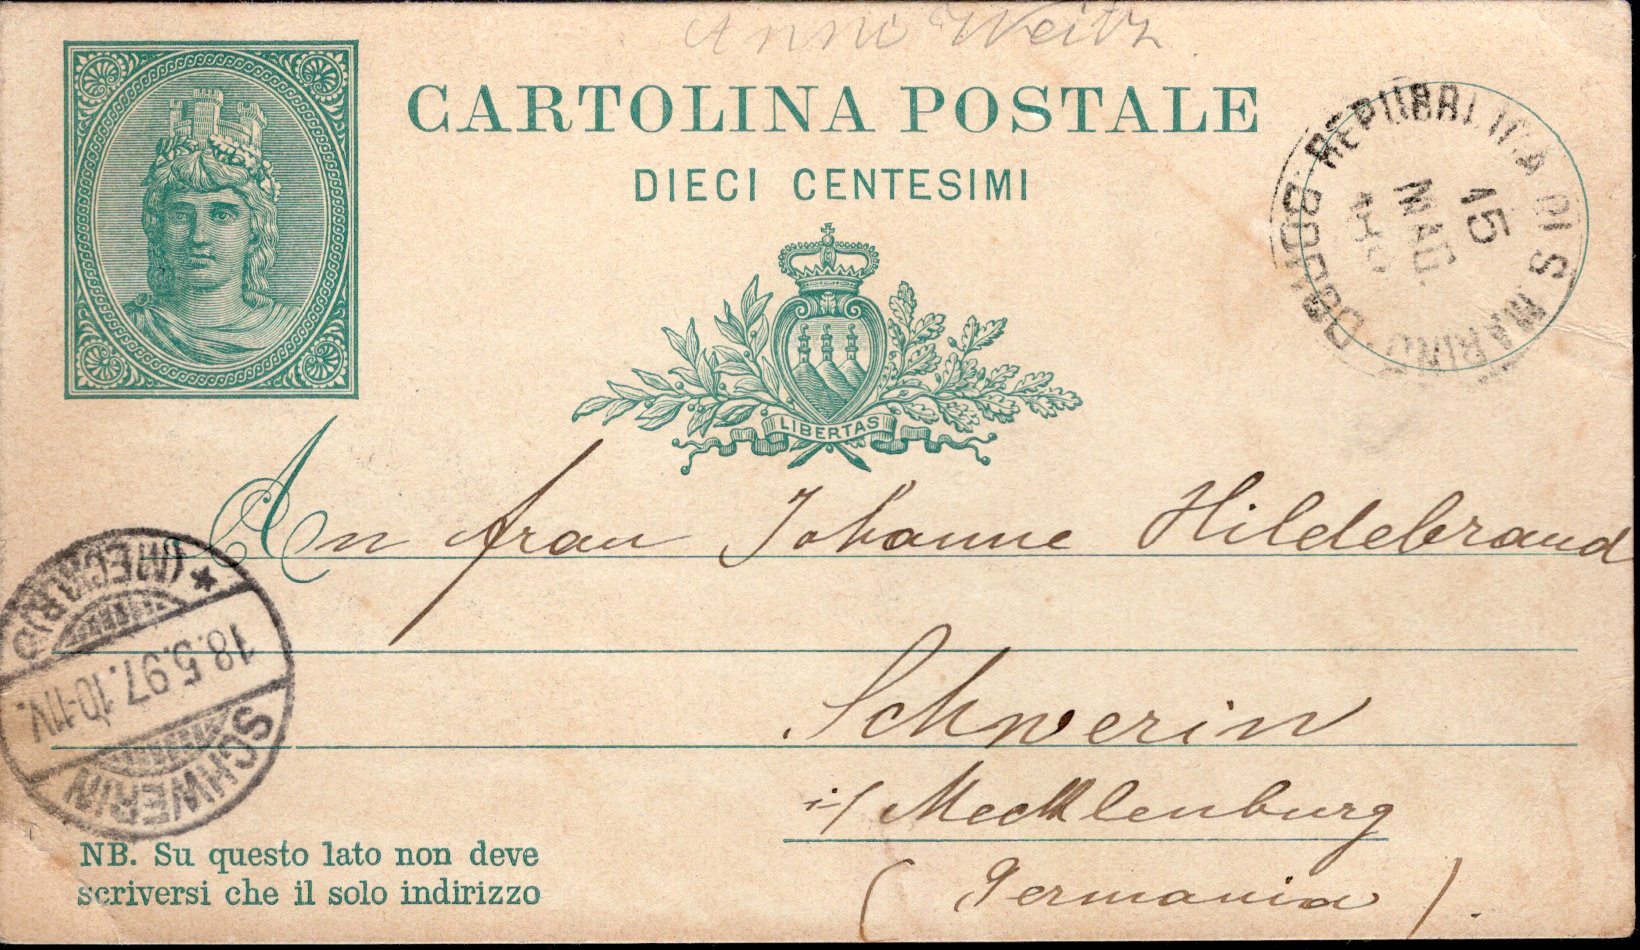 Anni Weitz
CARTOLINA POSTALE
DIECI CENTESIMI
REPUBBLICA DI S. MARINO
BORGO
15
MAG.
LIBERTAS
An frau Johanne Hildebrand
Schwerin
i/ Mecklenburg
(Germania).
SCHWERIN
(MECKLB)
18.5.97.10-11V.
NB. Su questo lato non deve
scriversi che il solo indirizzo